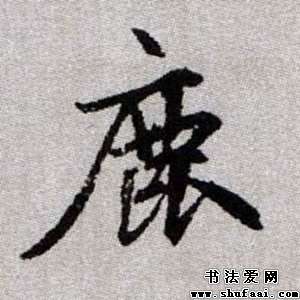 鹿
书法爱网
www.shufaai.com